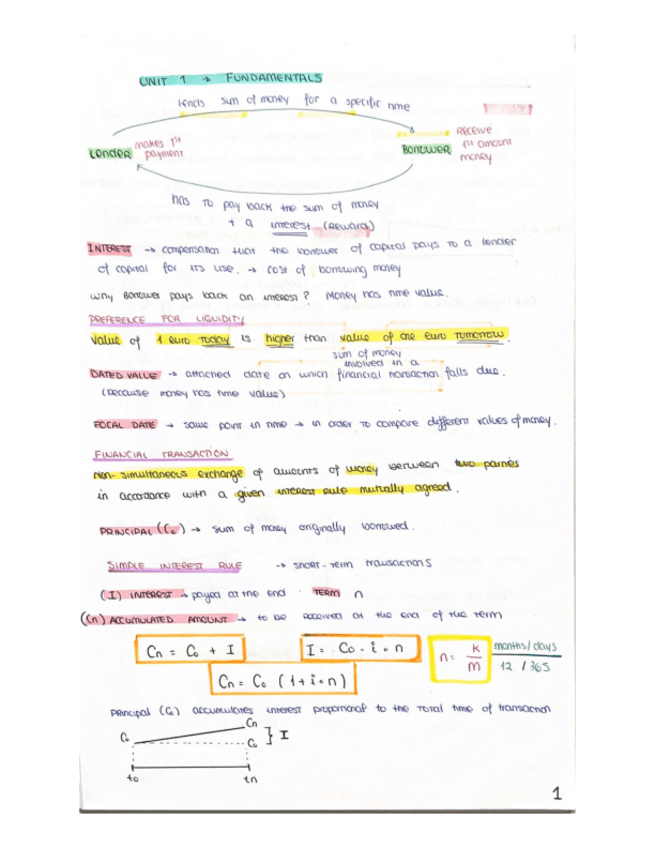 UNIT 1 → FUNDAMENTALS
lends sum of money for a specific time
LENDER makes 1st payment
BORROWER RECEIVE 1st amount money
has to pay back the sum of money
+ a interest (REWARD)
INTEREST → compensation that the borrower of capital pays to a lender
of capital for its use. → cost of borrowing money
Why borrower pays back an interest? Money has time value.
PREFERENCE FOR LIQUIDITY
Value of 1 euro TODAY is higher than value of one euro TOMORROW.
sum of money
involved in a
DATED VALUE → attached date on which financial transaction falls due.
(because money has time value)
FOCAL DATE → same point in time → in order to compare different values of money.
FINANCIAL TRANSACTION
Non-simultaneous exchange of amounts of money between two parties
in accordance with a given interest rule mutually agreed.
PRINCIPAL (C₀) → sum of money originally borrowed.
SIMPLE INTEREST RULE → short-term transactions
(I) INTEREST → payed at the end TERM n
(Cn) ACCUMULATED AMOUNT → to be received at the end of the term
Cn = C₀ + I
I = C₀ · i · n
n = k/m
months/days
12 / 365
Cn = C₀ (1 + i · n)
Principal (C₀) accumulates interest proportional to the total time of transaction
Cn
C₀ C₀ } I
t₀ tn
1